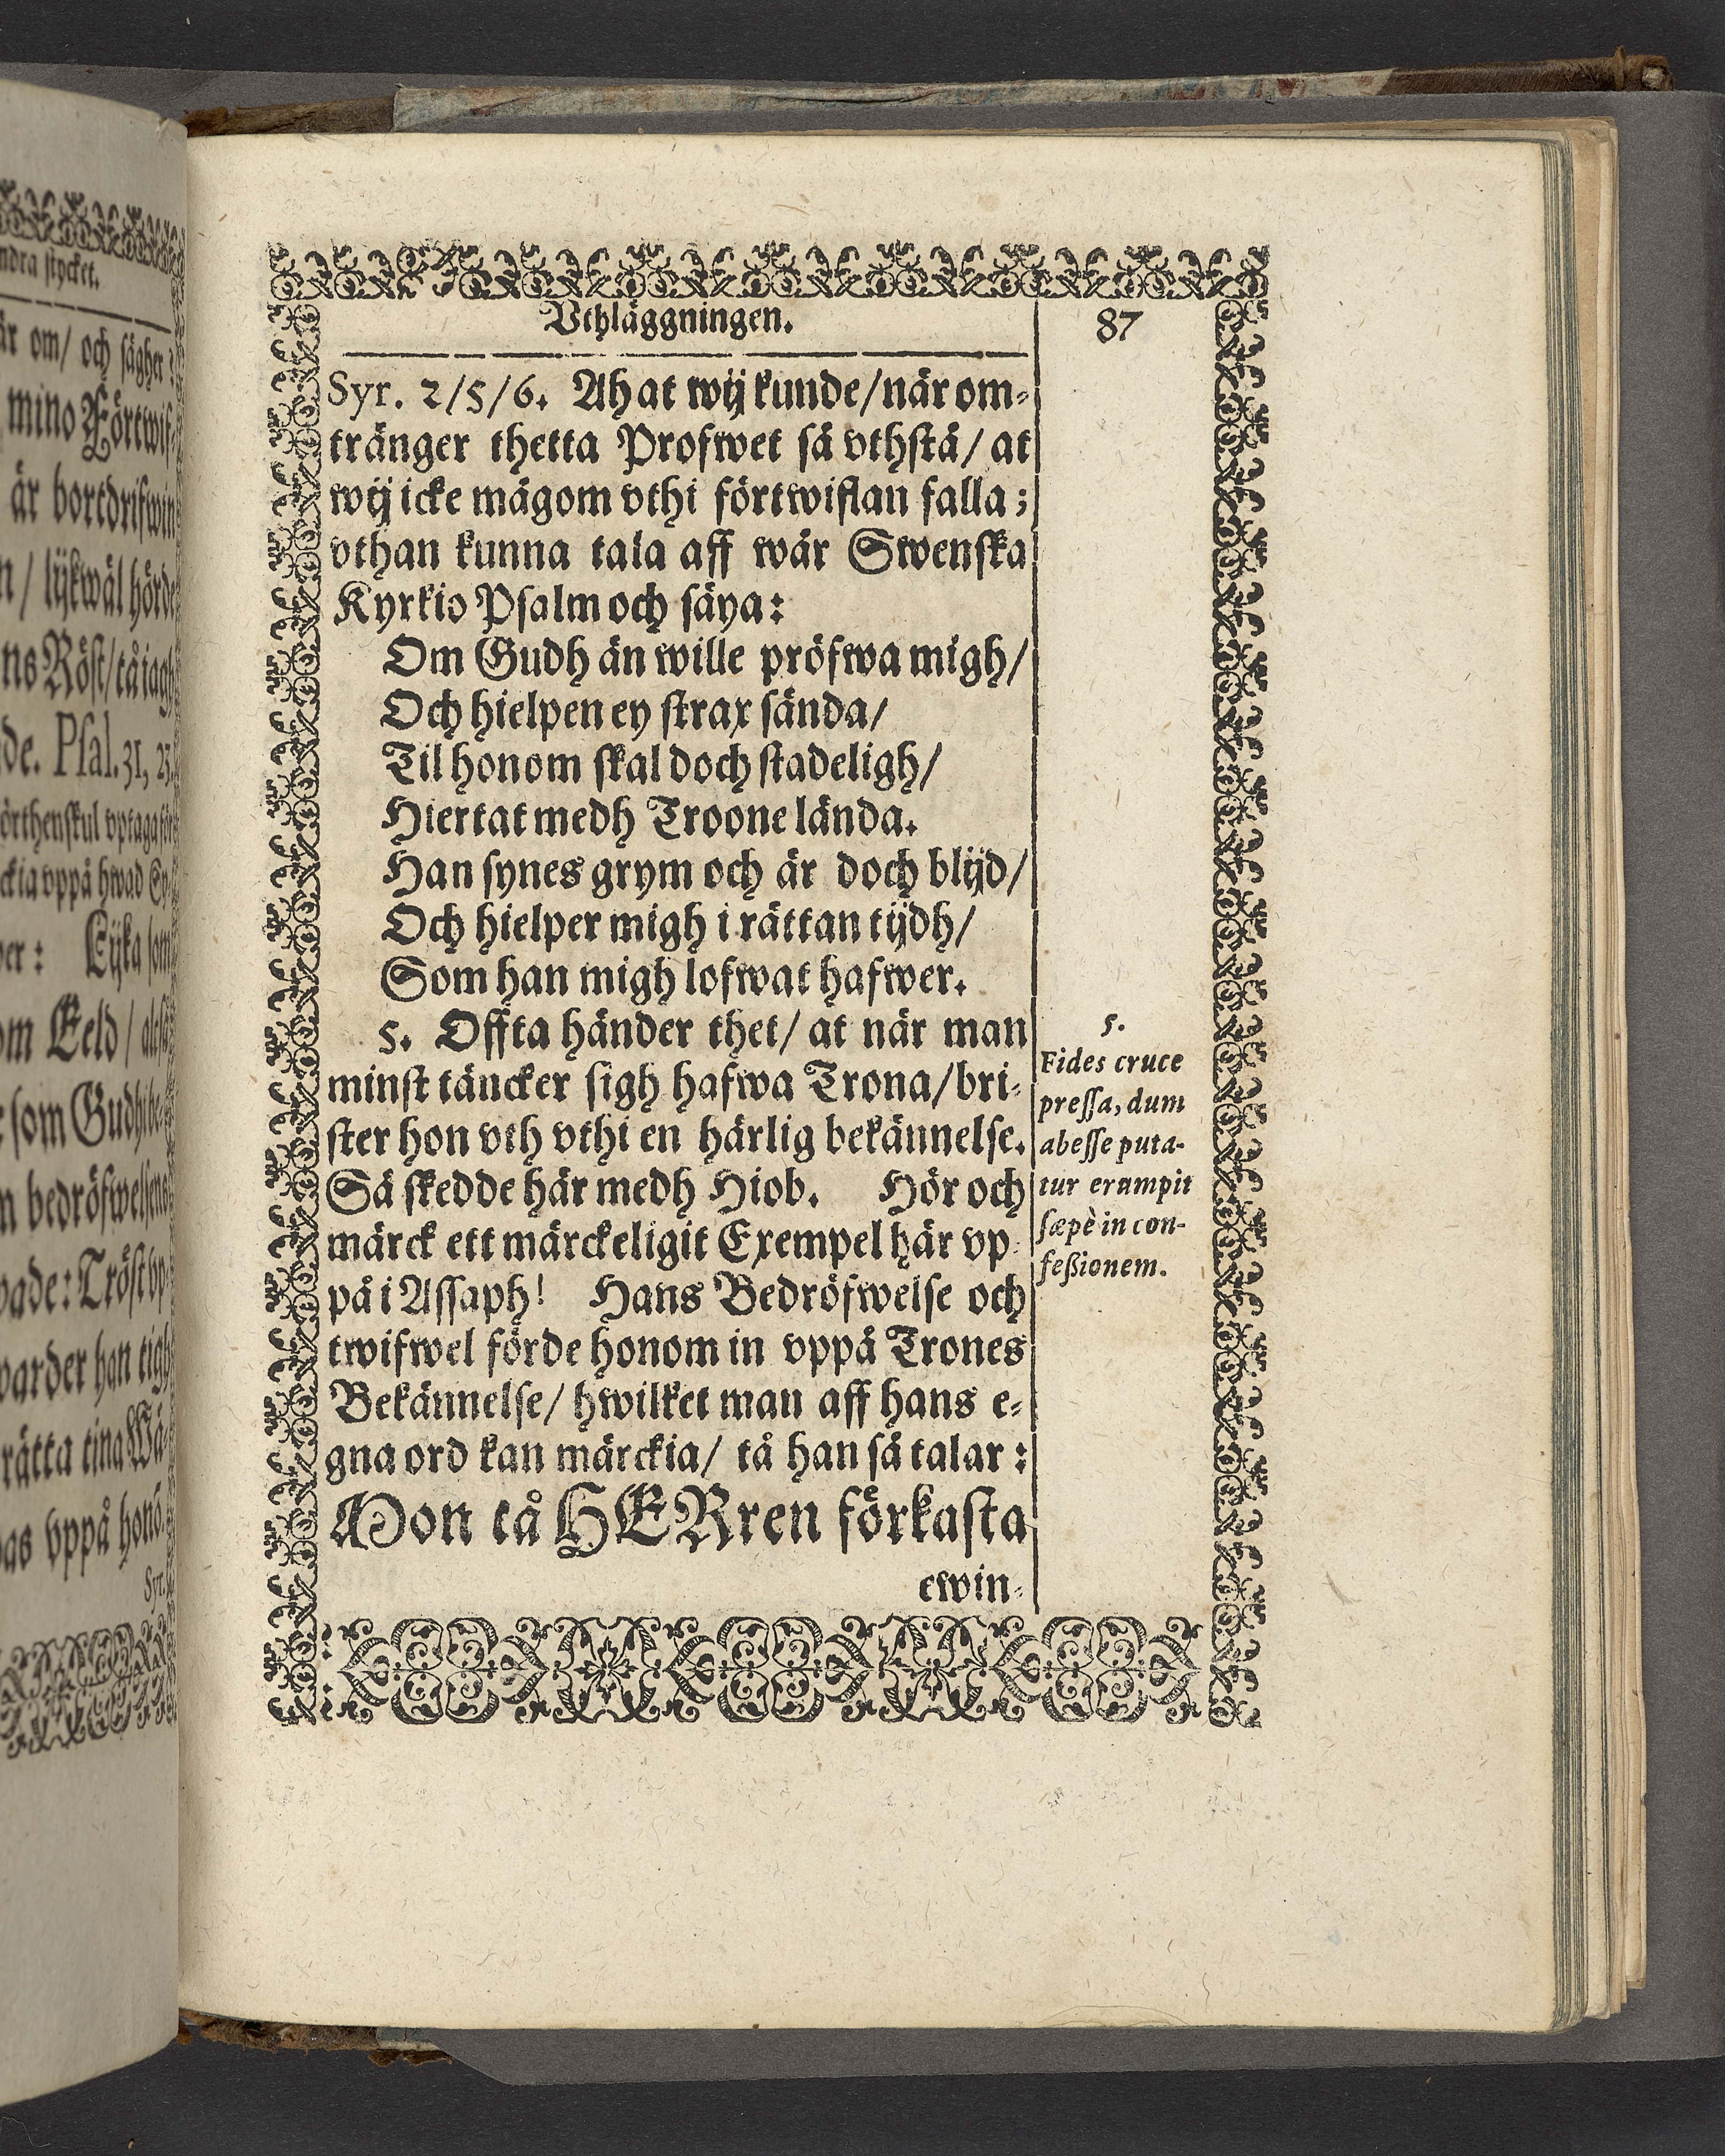 ndra stycket.
är om/ och sägher
mino Förtwif-
är bortdrifwin
lijkwäl hörde
ns Röst/ tå iagh
de. Psal. 31, 23.
örthenskul vptaga för
ckia vppå hwad Sy-
er: Lijka som
om Eeld/
som Gudh
n bedröfwelsens
Tröst vp-
warder han tigh
rätta tina Wä-
as vppå honō.
Syr.
Vthläggningen.
87
Syr. 2/5/6. Ah at wij kunde/ när om-
tränger thetta Profwet så vthstå/ at
wij icke mågom vthi förtwiflan falla;
vthan kunna tala aff wår Swenska
Kyrkio Psalm och säya:
Om Gudh än wille pröfwa migh/
Och hielpen ey strax sända/
Til honom skal doch stadeligh/
Hiertat medh Troone lända.
Han synes grym och är doch blijd/
Och hielper migh i rättan tijdh/
Som han migh lofwat hafwer.
5. Offta händer thet/ at när man
minst täncker sigh hafwa Trona/ bri-
ster hon vth vthi en härlig bekännelse.
Så skedde här medh Hiob. Hör och
märck ett märckeligit Exempel här vp-
på i Assaph! Hans Bedröfwelse och
twifwel förde honom in vppå Trones
Bekännelse/ hwilket man aff hans e-
gna ord kan märckia/ tå han så talar:
Mon tå HERren förkasta
ewin-
5.
Fides cruce
pressa, dum
abesse puta-
tur erumpit
sæpè in con-
feßionem.